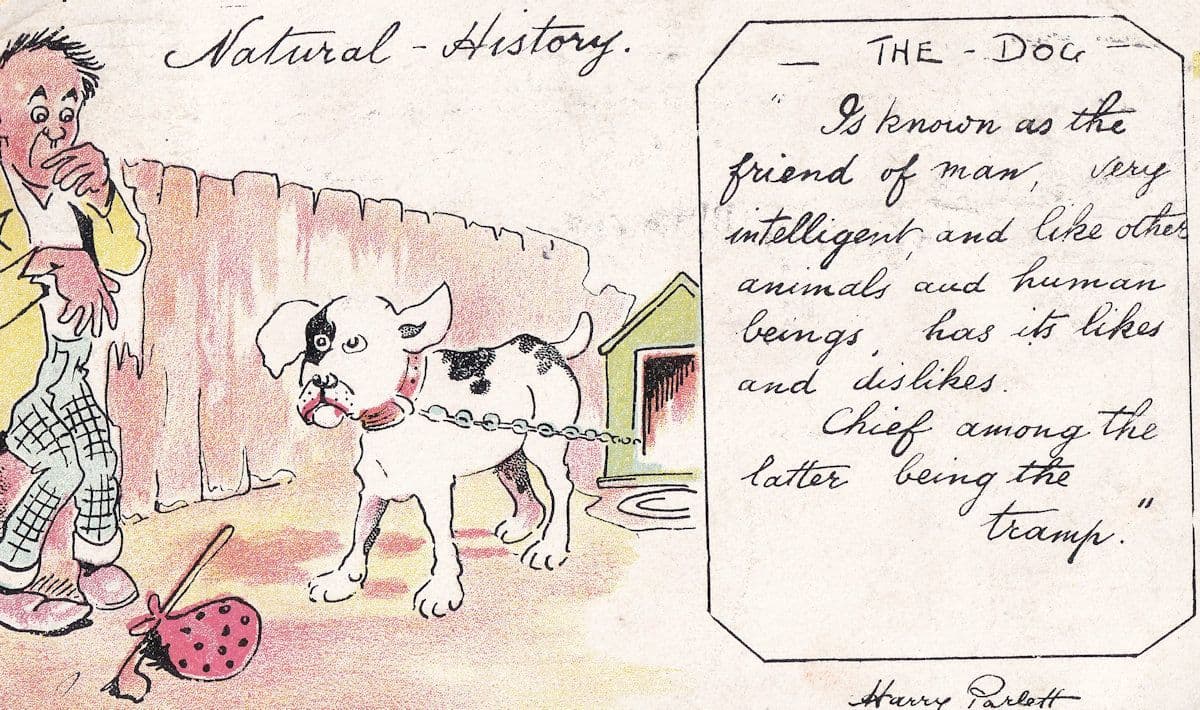 Natural - History.
THE - DOG -
" Is known as the
friend of man, very
intelligent, and like other
animals and human
beings, has its likes
and dislikes.
Chief among the
latter being the
tramp."
Harry Parlett